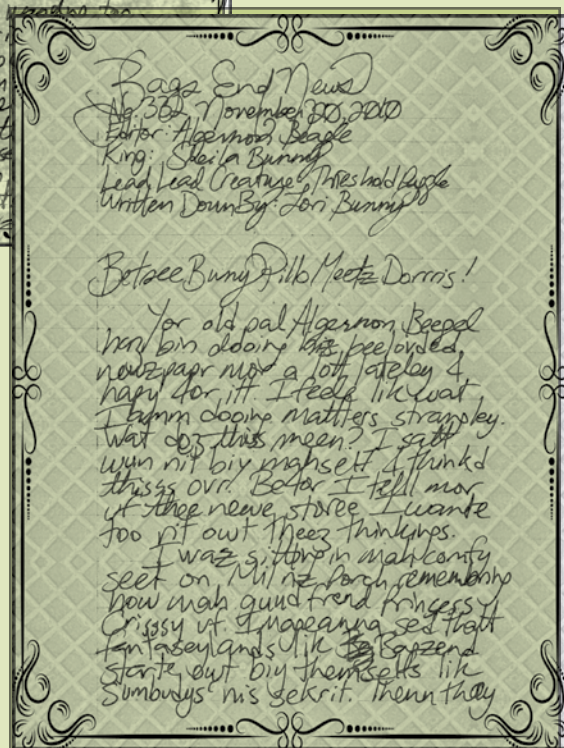 Bags End News
No. 332, November 20, 2010
Editor: Algernon Beagle
King: Sheila Bunny
Lead Lead Creature: Threshold Puzzle
Written Down By: Lori Bunny
Betsee Buny Pillo Meetz Dorrris!
Yor old pal Algernon Beegel
haz bin dooing his beeloved
newzpapr mor a lott lateley &
hapy for itt. I feele lik wat
I amm dooing mattters strangley.
Wat doz this meen? I satt
wun nit biy mahself & thinkd
thisss ovr. Befor I tell mor
uf thee neewe storee I wante
too rit owt theez thinkings.
I waz sitting in mah comfy
seet on Milnz Porch remembring
how mah guud frend Princess
Crissy uf Imageanna sed thatt
fantaseylands lik Bagzend
starts owt biy themselfs lik
Sumbudys nis sekrit. Thenn thay